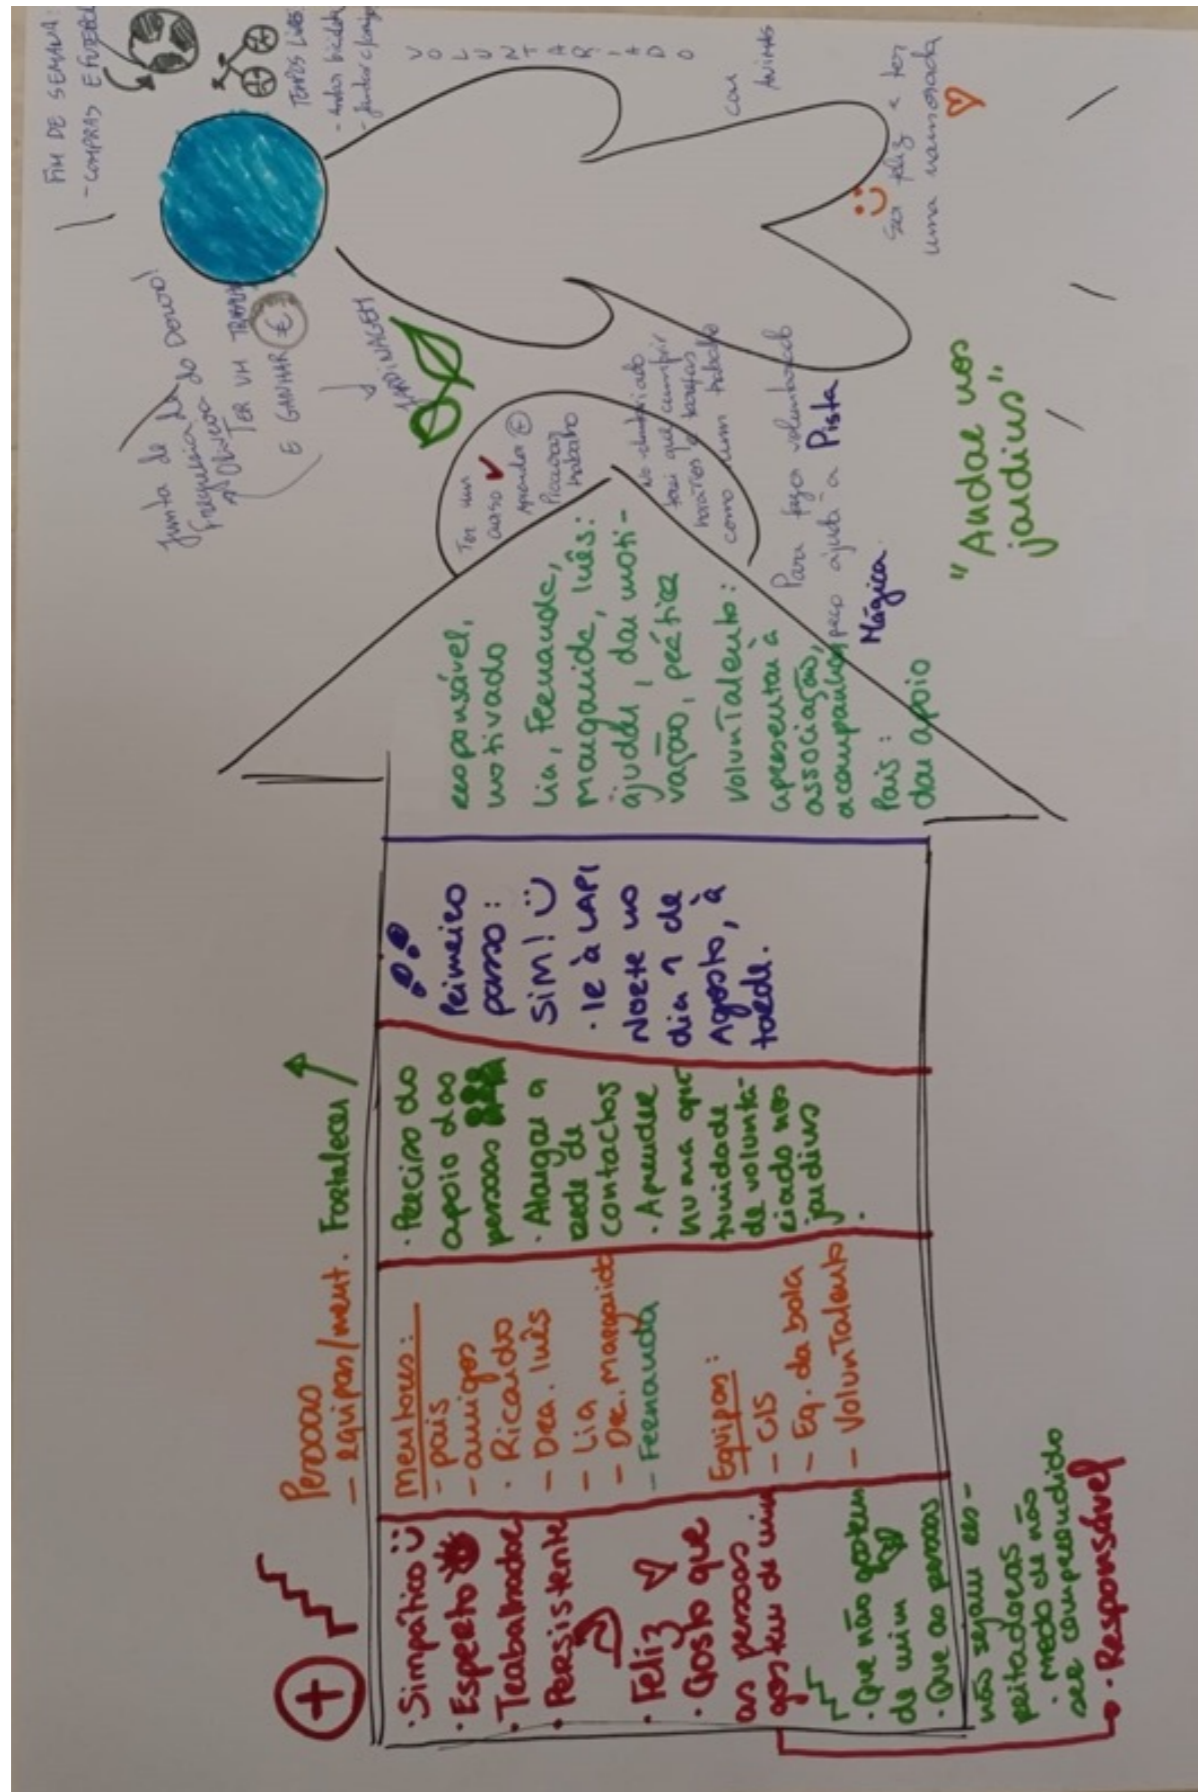 Simpático
· Esperto
· Trabalhador
· Persistente
· Feliz
· Gosto que
as pessoas
gostem de mim
· Que não gostem
de mim
· Que as pessoas
não sejam res-
peitadoras
· medo de não
ser compreendido
· Responsável
Pessoas
- equipas/ment.
mentores:
- pais
- amigos
· Ricardo
- Dra. Inês
- Lia
- Dra. Margarida
- Fernanda
Equipas:
- CIS
- Eq. da bola
- VolunTalento
Fortalecer
· Preciso do
apoio das
pessoas
· Alargar a
rede de
contactos
· Aprender
numa opor-
tunidade
de volunta-
riado nos
jardins
Primeiro
passo:
SIM!
· Ir à LAPI
Norte no
dia 1 de
Agosto, à
tarde.
responsável,
motivado
Lia, Fernanda,
margarida, Inês:
ajudar, dar moti-
vação, prática
VolunTalento:
apresentar à
associação,
acompanhar
Pais:
dar apoio
Ter um
curso
Aprender
Procurar
trabalho
No voluntariado
tenho que cumprir
horários e tarefas
como num trabalho
Para fazer voluntariado
peço ajuda à Pista
Mágica.
"Andar nos
jardins"
Junta de
freguesia de
Oliveira do Douro!
TER UM TRABALHO
E GANHAR €
JARDINAGEM
FIM DE SEMANA:
- COMPRAS E FUTEBOL
TEMPOS LIVRES
- Andar bicicleta
- Jantar c/ família
VOLUNTARIADO
COM
ANIMAIS
Ser feliz e ter
uma namorada